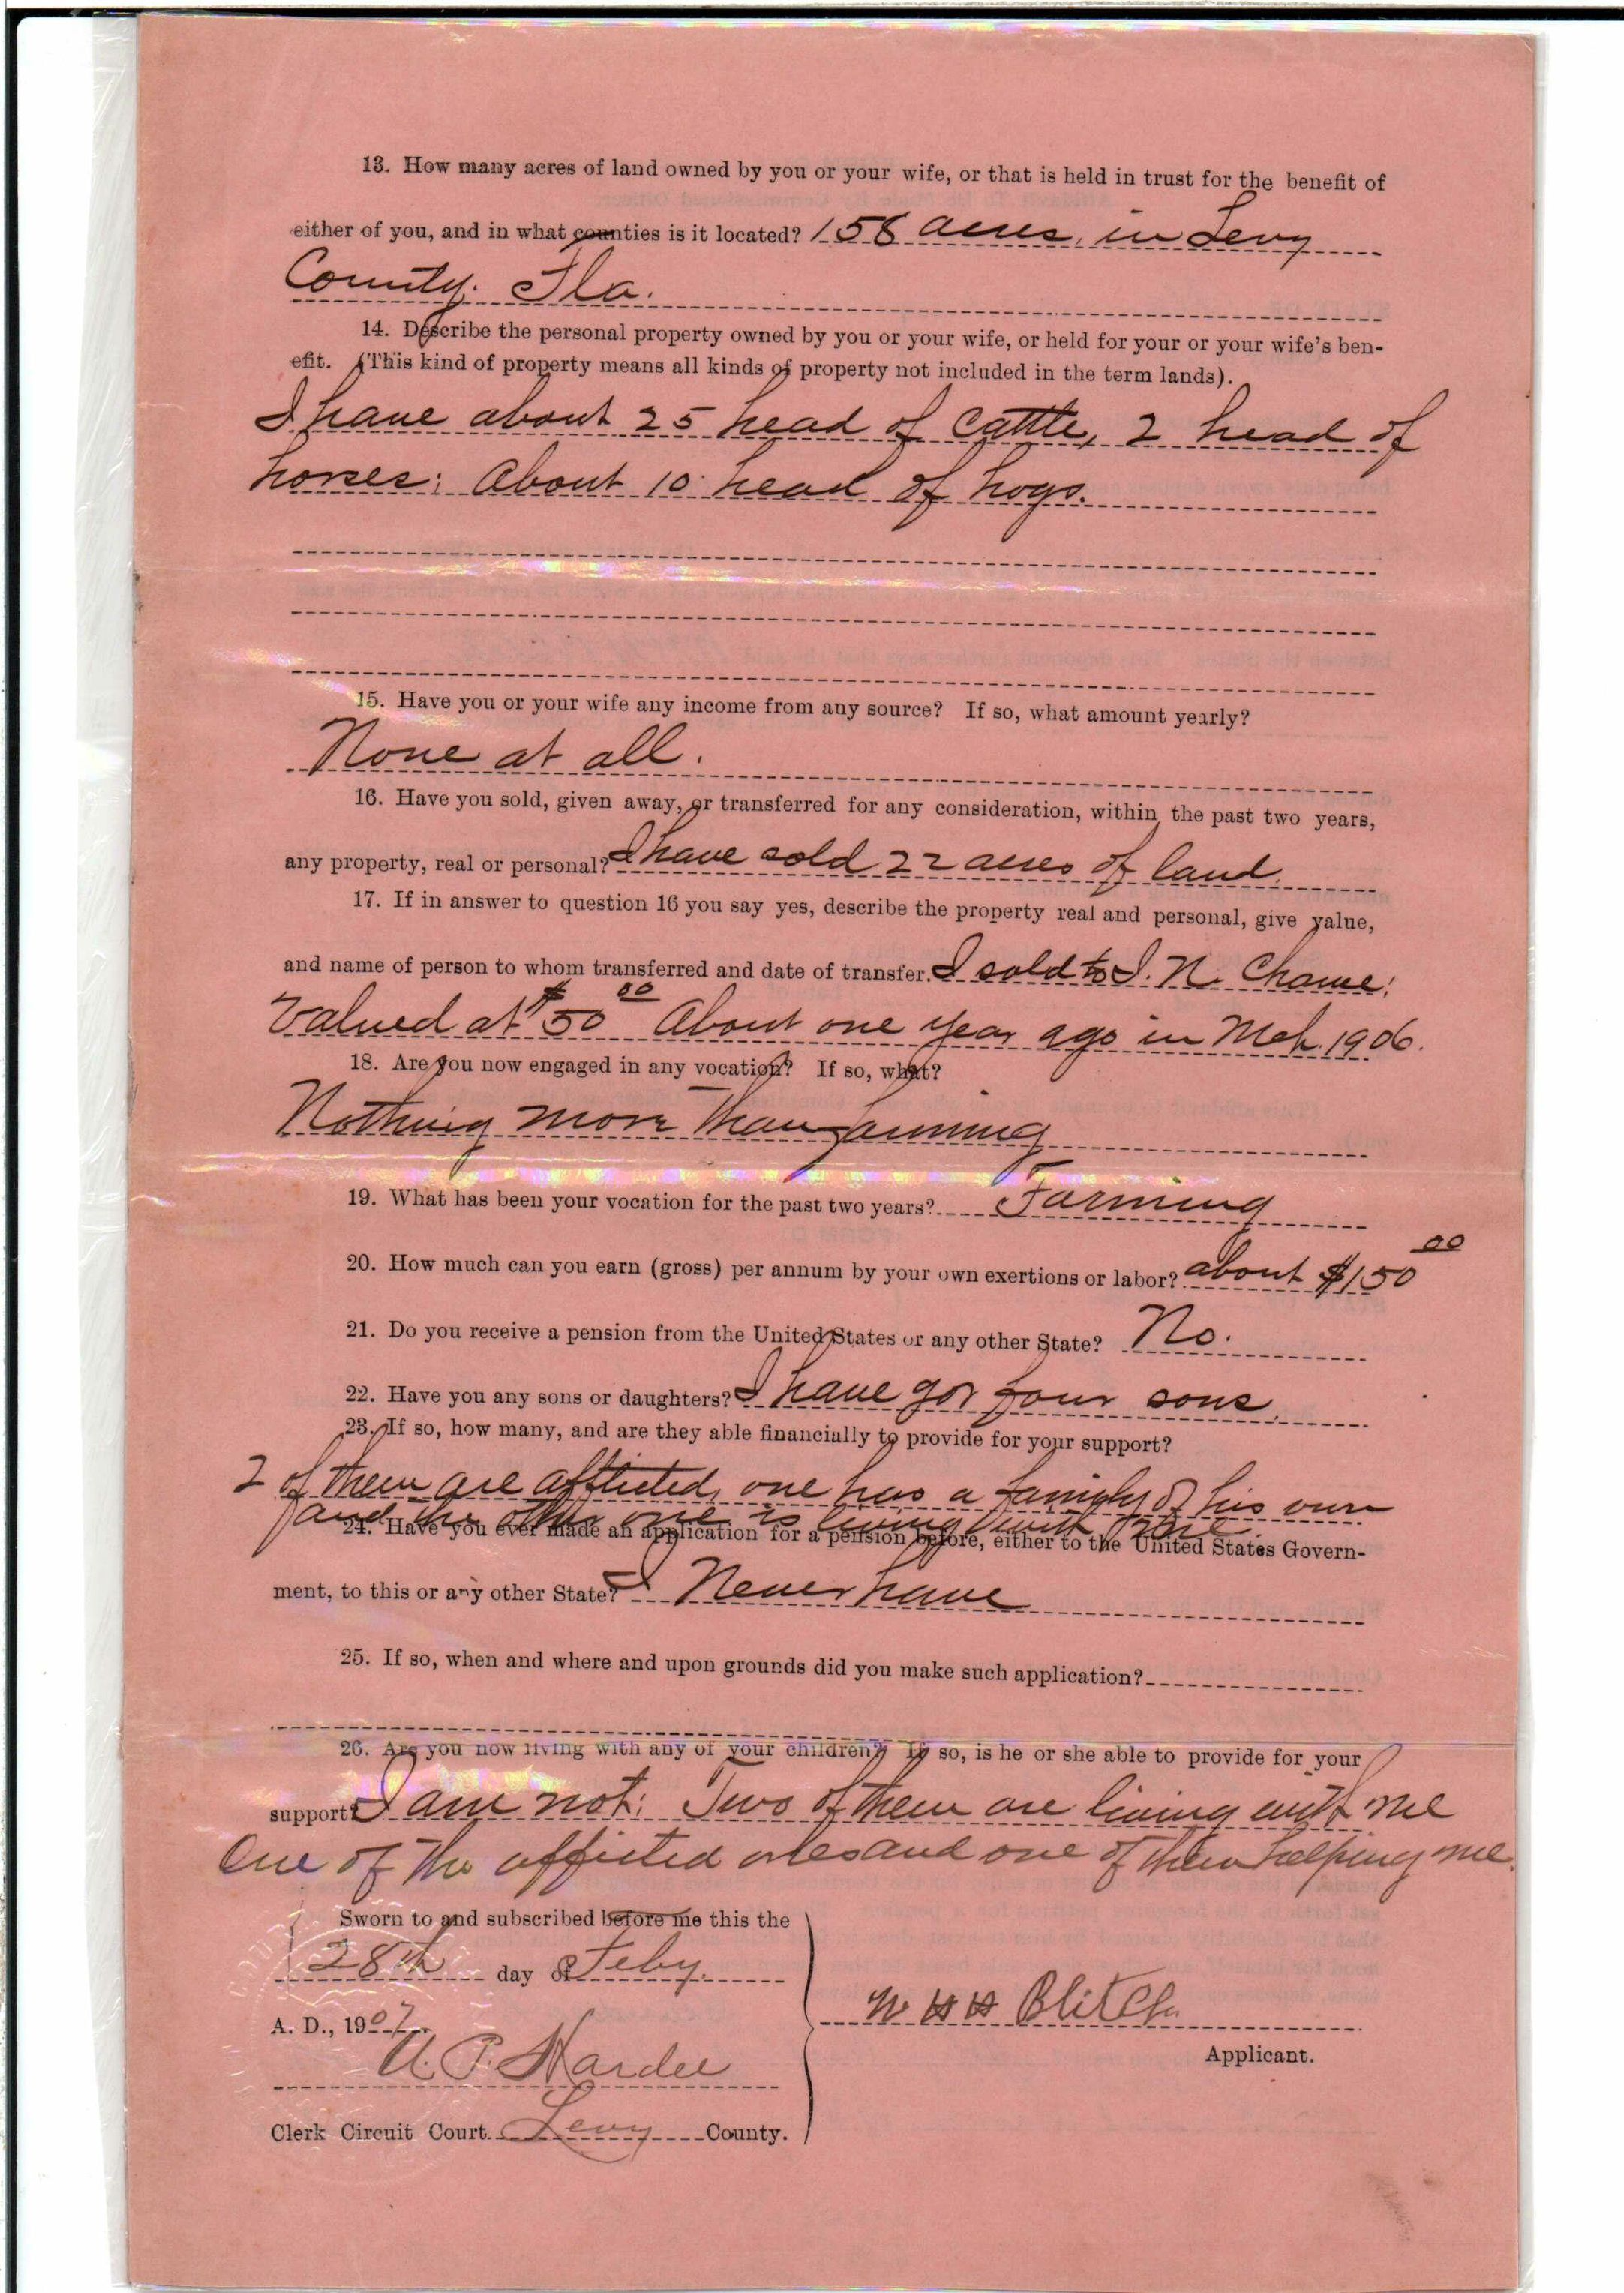 13. How many acres of land owned by you or your wife, or that is held in trust for the benefit of
either of you, and in what counties is it located? 158 acres, in Levy
County. Fla.
14. Describe the personal property owned by you or your wife, or held for your or your wife's ben-
efit. (This kind of property means all kinds of property not included in the term lands).
I have about 25 head of Cattle, 2 head of
horses; About 10 head of hogs.
15. Have you or your wife any income from any source? If so, what amount yearly?
None at all.
16. Have you sold, given away, or transferred for any consideration, within the past two years,
any property, real or personal? I have sold 22 acres of land.
17. If in answer to question 16 you say yes, describe the property real and personal, give value,
and name of person to whom transferred and date of transfer. I sold to I. N.
Valued at $50 00 About one year ago in Mch. 1906.
18. Are you now engaged in any vocation? If so, what?
Nothing more than farming
19. What has been your vocation for the past two years? Farming
20. How much can you earn (gross) per annum by your own exertions or labor? about $150 00
21. Do you receive a pension from the United States or any other State? No.
22. Have you any sons or daughters? I have got four sons.
23. If so, how many, and are they able financially to provide for your support?
2 of them are afflicted, one has a family of his own
and the other one is living with me.
24. Have you ever made an application for a pension before, either to the United States Govern-
ment, to this or any other State? I Never have
25. If so, when and where and upon grounds did you make such application?
26. Are you now living with any of your children? If so, is he or she able to provide for your
support? I am not; Two of them are living with me
One of the afflicted ones and one of them helping me.
Sworn to and subscribed before me this the
28th day of Feby.
A. D., 1907.
W H H Blitch
Applicant.
Hardee
Clerk Circuit Court Levy County.